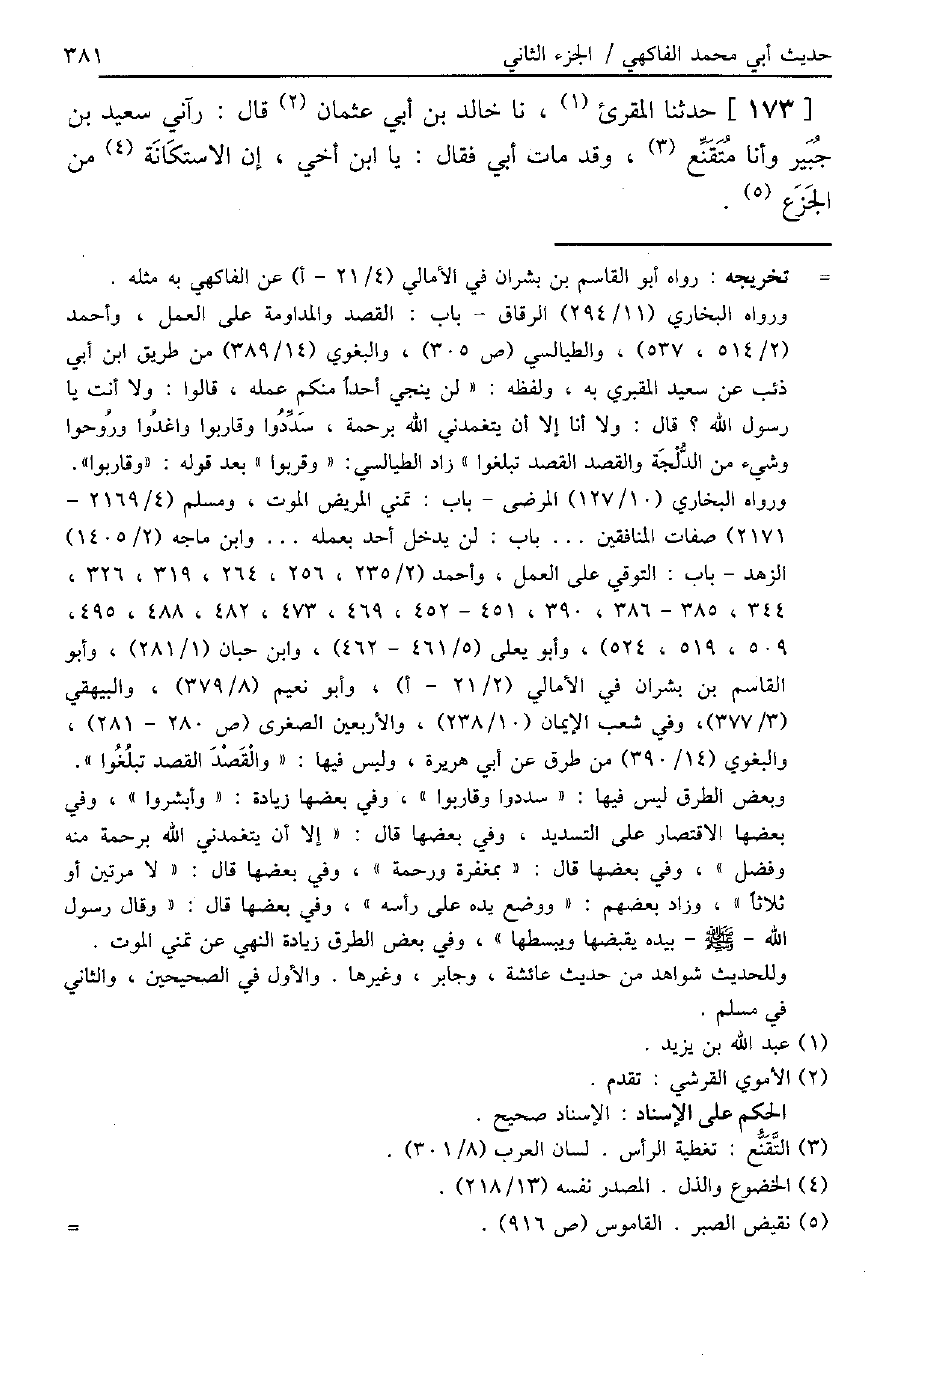 حديث أبي محمد الفاكهي / الجزء الثاني ٣٨١
[ ١٧٣ ] حدثنا المقرئ (١) ، نا خالد بن أبي عثمان (٢) قال : رآني سعيد بن
جُبَير وأنا مُتَقَنِّع (٣) ، وقد مات أبي فقال : يا ابن أخي ، إن الاستكَانَة (٤) من
الجَزَع (٥) .
= تخريجه : رواه أبو القاسم بن بشران في الأمالي (٤/ ٢١ - أ) عن الفاكهي به مثله .
ورواه البخاري (١١/ ٢٩٤) الرقاق - باب : القصد والمداومة على العمل ، وأحمد
(٢/ ٥١٤ ، ٥٣٧) ، والطيالسي (ص ٣٠٥) ، والبغوي (١٤/ ٣٨٩) من طريق ابن أبي
ذئب عن سعيد المقبري به ، ولفظه : « لن ينجي أحداً منكم عمله ، قالوا : ولا أنت يا
رسول الله ؟ قال : ولا أنا إلا أن يتغمدني الله برحمة ، سَدِّدُوا وقاربوا واغدُوا ورُوحوا
وشيء من الدُّلْجَة والقصد القصد تبلغوا » زاد الطيالسي: « وقربوا » بعد قوله : «وقاربوا».
ورواه البخاري (١٠/ ١٢٧) المرضى - باب : تمني المريض الموت ، ومسلم (٤/ ٢١٦٩ -
٢١٧١) صفات المنافقين ... باب : لن يدخل أحد بعمله ... وابن ماجه (٢/ ١٤٠٥)
الزهد - باب : التوقي على العمل ، وأحمد (٢/ ٢٣٥ ، ٢٥٦ ، ٢٦٤ ، ٣١٩ ، ٣٢٦ ،
٣٤٤ ، ٣٨٥ - ٣٨٦ ، ٣٩٠ ، ٤٥١ - ٤٥٢ ، ٤٦٩ ، ٤٧٣ ، ٤٨٢ ، ٤٨٨ ، ٤٩٥ ،
٥٠٩ ، ٥١٩ ، ٥٢٤) ، وأبو يعلى (٥/ ٤٦١ - ٤٦٢) ، وابن حبان (١/ ٢٨١) ، وأبو
القاسم بن بشران في الأمالي (٢/ ٢١ - أ) ، وأبو نعيم (٨/ ٣٧٩) ، والبيهقي
(٣/ ٣٧٧)، وفي شعب الإيمان (١٠/ ٢٣٨) ، والأربعين الصغرى (ص ٢٨٠ - ٢٨١) ،
والبغوي (١٤/ ٣٩٠) من طرق عن أبي هريرة ، وليس فيها : « والْقَصْدَ القصد تبلُغُوا ».
وبعض الطرق ليس فيها : « سددوا وقاربوا » ، وفي بعضها زيادة : « وأبشروا » ، وفي
بعضها الاقتصار على التسديد ، وفي بعضها قال : « إلا أن يتغمدني الله برحمة منه
وفضل » ، وفي بعضها قال : « بمغفرة ورحمة » ، وفي بعضها قال : « لا مرتين أو
ثلاثاً » ، وزاد بعضهم : « ووضع يده على رأسه » ، وفي بعضها قال : « وقال رسول
الله - ﷺ - بيده يقبضها ويبسطها » ، وفي بعض الطرق زيادة النهي عن تمني الموت .
وللحديث شواهد من حديث عائشة ، وجابر ، وغيرها . والأول في الصحيحين ، والثاني
في مسلم .
(١) عبد الله بن يزيد .
(٢) الأموي القرشي : تقدم .
الحكم على الإسناد : الإسناد صحيح .
(٣) التَّقَنُّع : تغطية الرأس . لسان العرب (٨/ ٣٠١) .
(٤) الخضوع والذل . المصدر نفسه (١٣/ ٢١٨) .
(٥) نقيض الصبر . القاموس (ص ٩١٦) . =